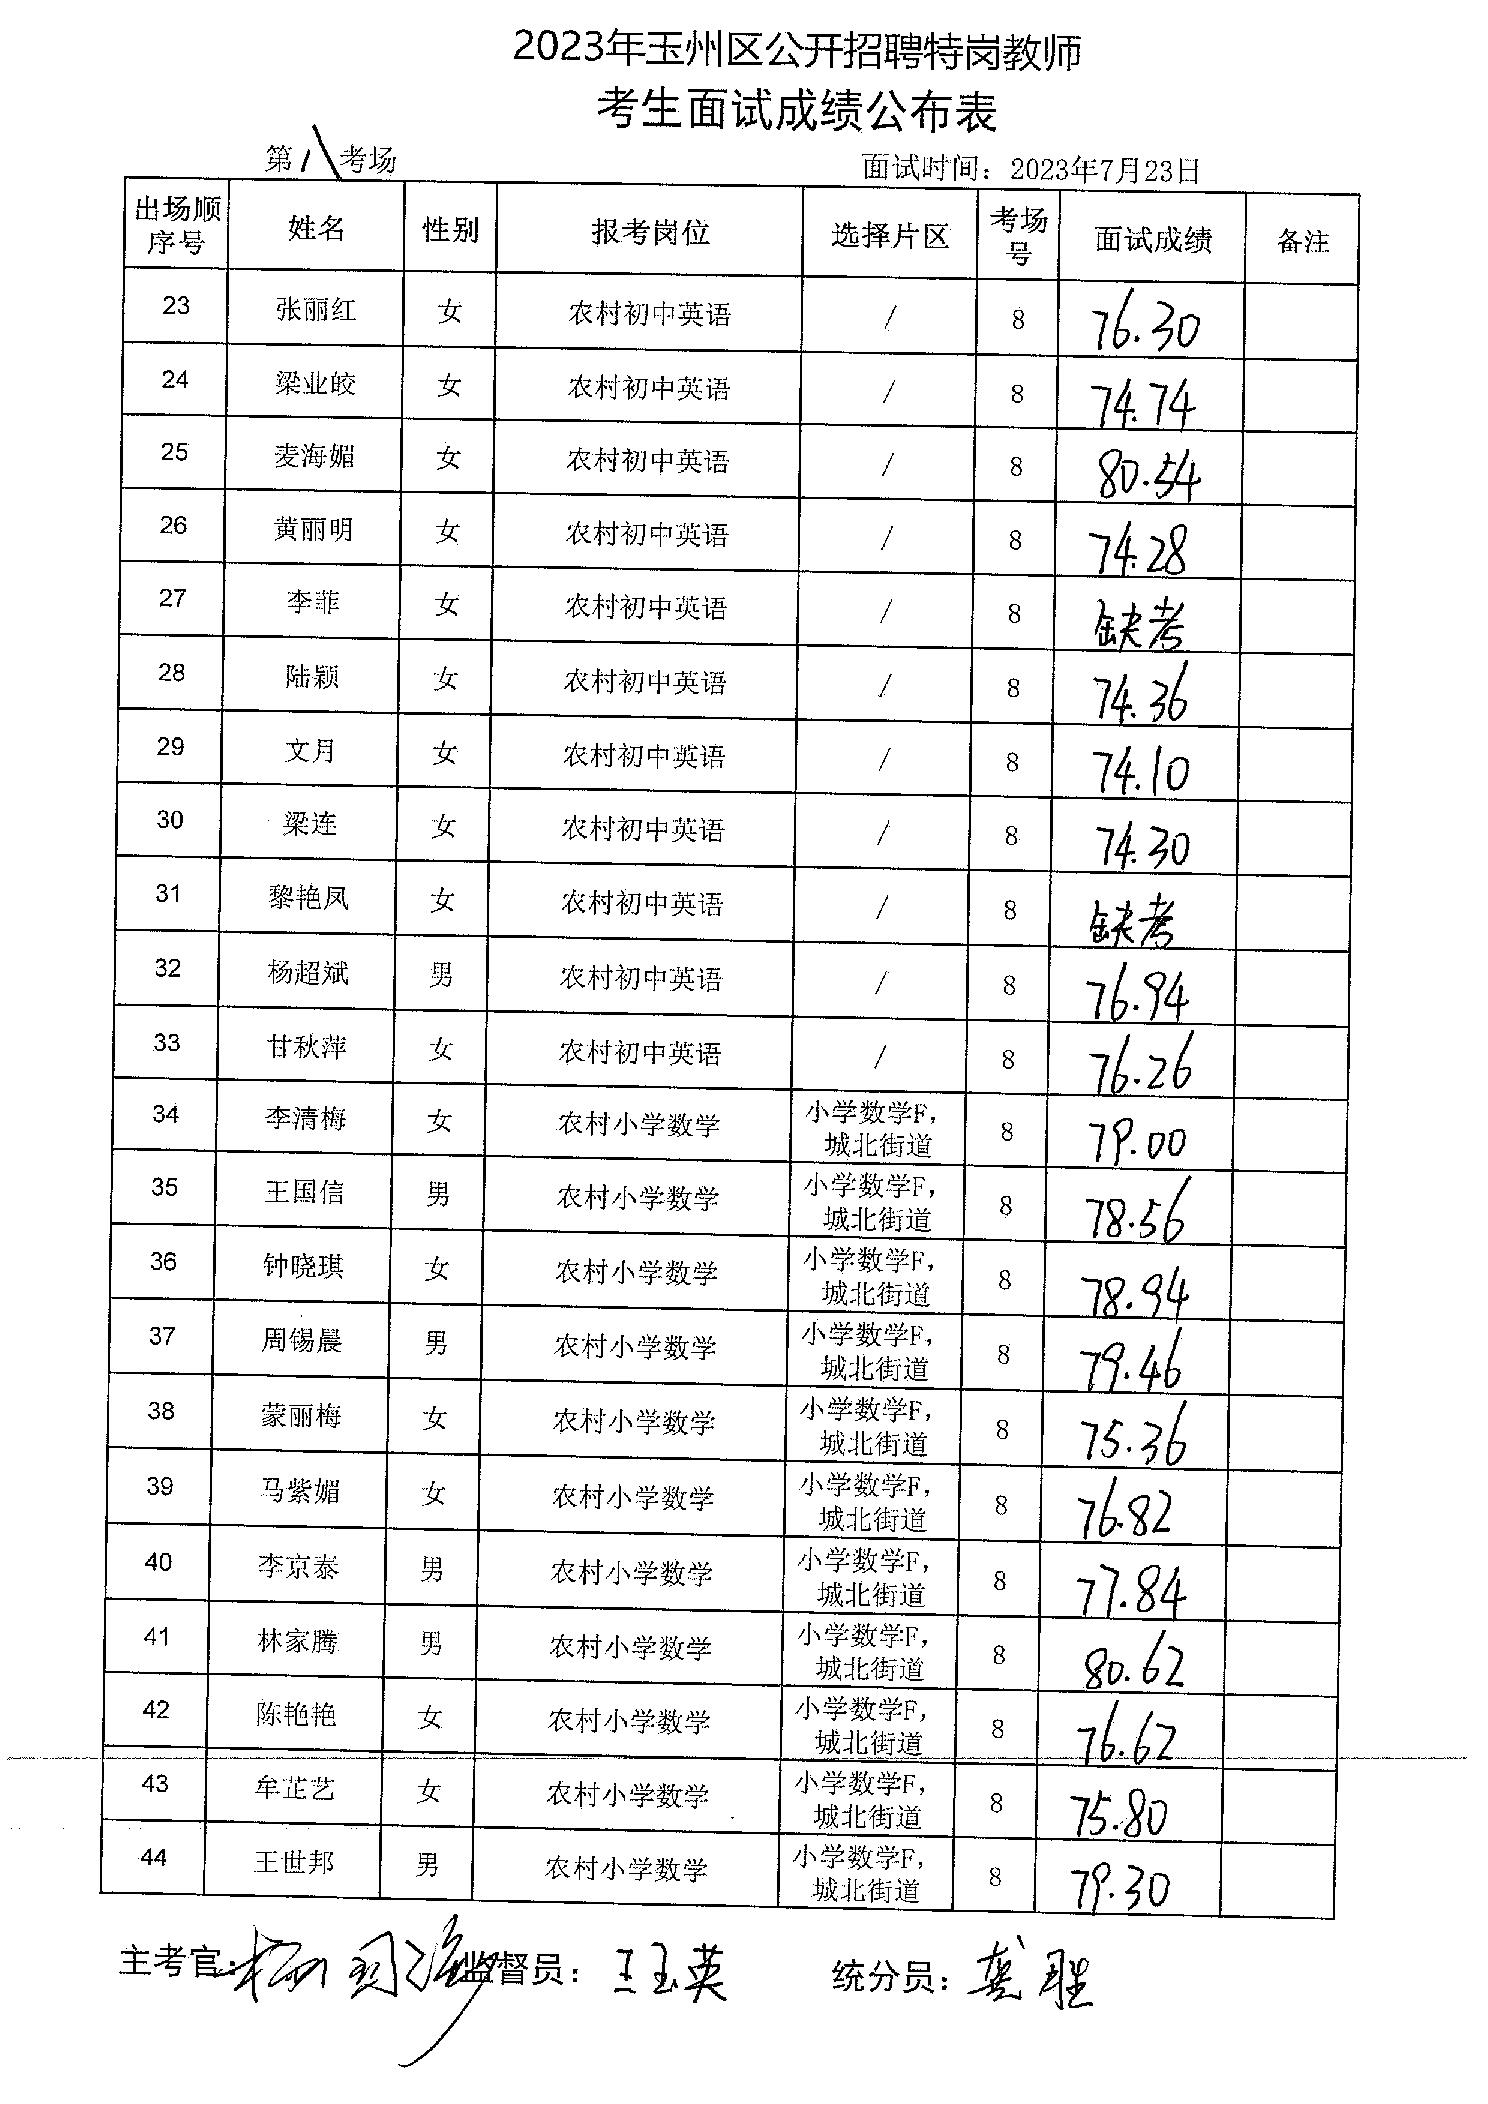 2023年玉州区公开招聘特岗教师
考生面试成绩公布表
第八考场 面试时间：2023年7月23日
出场顺序号 姓名 性别 报考岗位 选择片区 考场号 面试成绩 备注
23 张丽红 女 农村初中英语 / 8 76.30
24 梁业皎 女 农村初中英语 / 8 74.74
25 麦海媚 女 农村初中英语 / 8 80.54
26 黄丽明 女 农村初中英语 / 8 74.28
27 李菲 女 农村初中英语 / 8 缺考
28 陆颖 女 农村初中英语 / 8 74.36
29 文月 女 农村初中英语 / 8 74.10
30 梁连 女 农村初中英语 / 8 74.30
31 黎艳凤 女 农村初中英语 / 8 缺考
32 杨超斌 男 农村初中英语 / 8 76.94
33 甘秋萍 女 农村初中英语 / 8 76.26
34 李清梅 女 农村小学数学 小学数学F，城北街道 8 79.00
35 王国信 男 农村小学数学 小学数学F，城北街道 8 78.56
36 钟晓琪 女 农村小学数学 小学数学F，城北街道 8 78.94
37 周锡晨 男 农村小学数学 小学数学F，城北街道 8 79.46
38 蒙丽梅 女 农村小学数学 小学数学F，城北街道 8 75.36
39 马紫媚 女 农村小学数学 小学数学F，城北街道 8 76.82
40 李京泰 男 农村小学数学 小学数学F，城北街道 8 77.84
41 林家腾 男 农村小学数学 小学数学F，城北街道 8 80.62
42 陈艳艳 女 农村小学数学 小学数学F，城北街道 8 76.62
43 牟芷艺 女 农村小学数学 小学数学F，城北街道 8 75.80
44 王世邦 男 农村小学数学 小学数学F，城北街道 8 79.30
主考官： 监督员：王玉英 统分员：龚胜